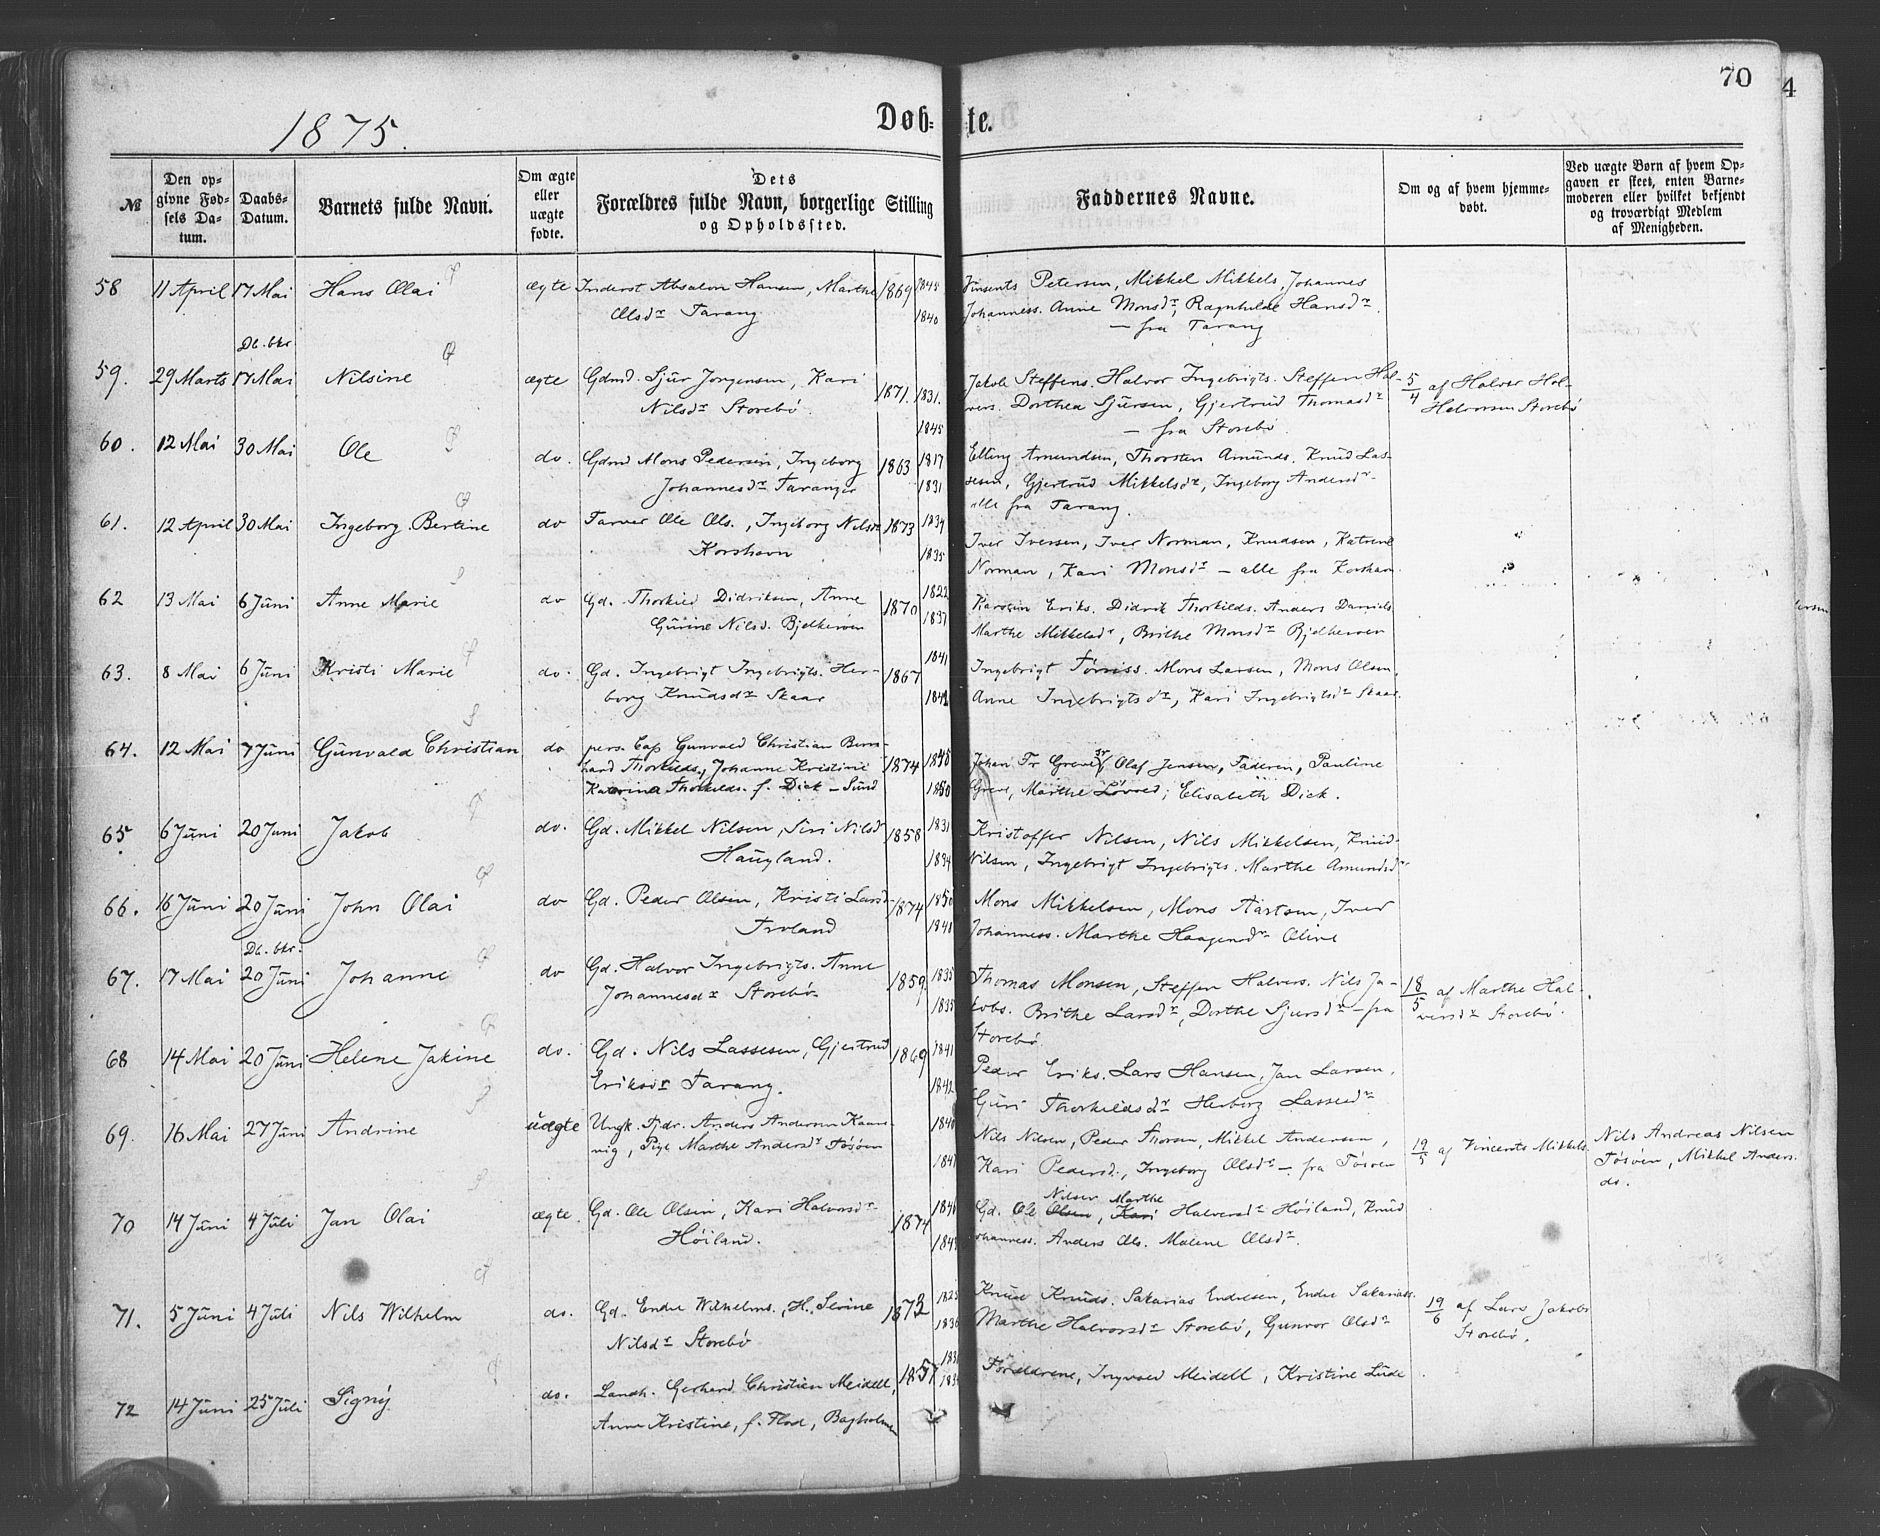 70
4
1875.
Døb-te.
№
Den opgivne Fødsels Datum.
Daabs-Datum.
Barnets fulde Navn.
Om ægte eller uægte fødte.
Dets Forældres fulde Navn, borgerlige Stilling og Opholdssted.
Faddernes Navne.
Om og af hvem hjemmedøbt.
Ved uægte Børn af hvem Opgaven er skeet, enten Barnemoderen eller hvilket bekjendt og troværdigt Medlem af Menigheden.
58 11 April 17 Mai Hans Olai ægte Inderst Absalon Hansen, Marthe 1869 1845 Vinsents Petersen, Mikkel Mikkels, Johannes
Olsdr Tarang 1840 Johanness. Anne Monsdr, Ragnhilde Hansdr
– fra Tarang
Db. bkr
59. 29 Marts 17 Mai Nilsine ægte Gdmd. Sjur Jorgensen, Kari 1871. 1831. Jakob Steffens. Halvor Ingebrigts. Steffen Hal- 5/4 af Halvor Hal-
Nilsdr Storebø. 1845 vers. Dorthea Sjursen, Gjertrud Thomasdr Halvorsen Storebø
– fra Storebø
60. 12 Mai 30 Mai Ole do. Gdmd Mons Pedersen, Ingeborg 1863 1817 Elling Amundsen, Thorsten Amunds. Knud Las-
Johannesdr Taranger 1831 sesen, Gjertrud Mikkelsdr, Ingeborg Andersdr
alle fra Tarang.
61. 12 April 30 Mai Ingeborg Bertine do Farver Ole Ols., Ingeborg Nilsdr 1873 1834 Iver Iversen, Iver Norman, Knudsen, Katrine
Korshavn 1835 Norman, Kari Monsdr – alle fra Korshavn.
62 13 Mai 6 Juni Anne Marie do Gd. Thorkild Didriksen, Anne 1870 1822 Karsten Eriks. Didrik Thorkilds. Anders Daniels
Gurine Nilsd. Bjelkerøen 1837 Marthe Mikkelsdr, Brithe Monsdr Bjelkerøen
63. 8 Mai 6 Juni Kristi Marie do. Gd. Ingebrigt Ingebrigts. Her- 1867 1841 Ingebrigt Tørriss. Mons Larsen, Mons Olsen,
borg Knudsdr Skaar 1842 Anne Ingebrigtsdr, Kari Ingebrigtsdr Skaar.
64. 12 Mai 7 Juni Gunvald Christian do pers. Cap Gunvald Christian Bern-
hard Thorkilds, Johanne Kristine 1874 1845 Johan Fr Greve, Olaf Jensen, Faderen, Pauline
Katrina Thorkilds. f. Dick – Sund 1850 Greve, Marthe Løvved, Elisabeth Dick.
65 6 Juni 20 Juni Jakob do. Gd. Mikkel Nilsen, Siri Nilsdr 1858 1831 Kristoffer Nilsen, Nils Mikkelsen, Knud
Haugland. 1834 Nilsen, Ingebrigt Ingebrigts. Marthe Amundsdr
66. 16 Juni 20 Juni John Olai do Gd. Peder Olsen, Kristi Larsd- 1874 1850 Mons Mikkelsen, Mons Aartsen, Iver
Troland 1848 Johanness. Marthe Haagensdr Oline
Db. bkr.
67. 17 Mai 20 Juni Johanne do Gd. Halvor Ingebrigts. Anne 1859 1835 Thomas Monsen, Steffen Halvers. Nils Ja- 18/5 af Marthe Hal-
Johannesdr Storebø 1835 kobs. Brithe Larsdr, Dorthe Sjursdr – fra versdr Storebø.
Storebø
68 14 Mai 20 Juni Helene Jakine do. Gd. Nils Lassesen, Gjertrud 1869 1841 Peder Eriks. Lars Hansen, Jan Larsen,
Eriksdr Tarang. 1842 Guri Thorkildsdr Herborg Lassesdr
69. 16 Mai 27 Juni Andrine uægte Ungk. Fjdr. Anders Andersen Kaar- 1840 Nils Nilsen, Peder Thorsen, Mikkel Andersen, 19/5 af Vincents Mikkels. Nils Andreas Nilsen
vig, Pige Marthe Andersdr Tøsøen 1847 Kari Pedersd., Ingeborg Olsdr – fra Tøsøen Tøsøen, Mikkel Anders.
do.
70 14 Juni 4 Juli Jan Olai ægte. Gd. Ole Olsen, Kari Halvorsdr 1874 1846 Gd. Ole Olsen Nilsen, Kari Marthe Halversdr Høiland, Knud
Høiland. 1849 Johanness. Anders Ols. Malene Olsdr.
71. 5 Juni 4 Juli Nils Wilhelm do. Gd. Endre Wilhelms., H. Serine 1873 1825 Knud Knuds. Sakarias Endresen, Endre Sakarias. 19/6 af Lars Jakobs
Nilsdr Storebø 1836 Marthe Halvorsdr Storebø, Gunvor Olsdr Storebø.
72 14 Juni 25 Juli Signý do. Landh. Gerhard Christien Meidell, 1857 Forældrene, Ingvald Meidell, Kristine Lude
Anne Kristine, f. Flod, Bagholmen